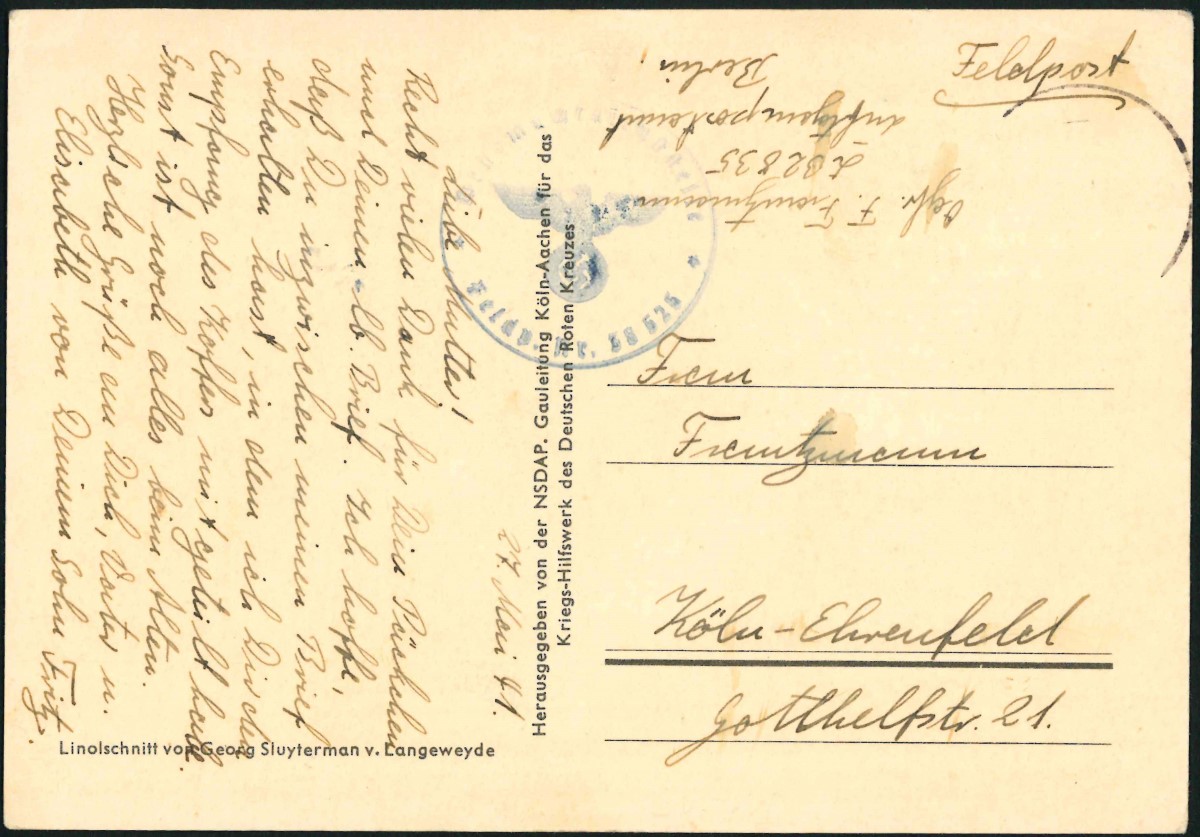 Feldpost
Gefr. F. Frantzmann
L 32835
Luftgaupostamt
Berlin
27. Mai 41.
Liebe Mutter!
Recht vielen Dank für Dein Päckchen
und Deinen lb. Brief. Ich hoffe,
daß Du inzwischen meinen Brief
erhalten hast, in dem ich Dir den
Empfang des Koffers mitgeteilt habe.
Sonst ist noch alles beim Alten.
Herzliche Grüße an Dich, Vater u.
Elisabeth von Deinem Sohn Fritz.
Linolschnitt von Georg Sluyterman v. Langeweyde
Herausgegeben von der NSDAP. Gauleitung Köln-Aachen für das
Kriegs-Hilfswerk des Deutschen Roten Kreuzes
* Feldp. Nr. 38 625 *
Frau
Frantzmann
Köln-Ehrenfeld
Gotthelfstr. 21.